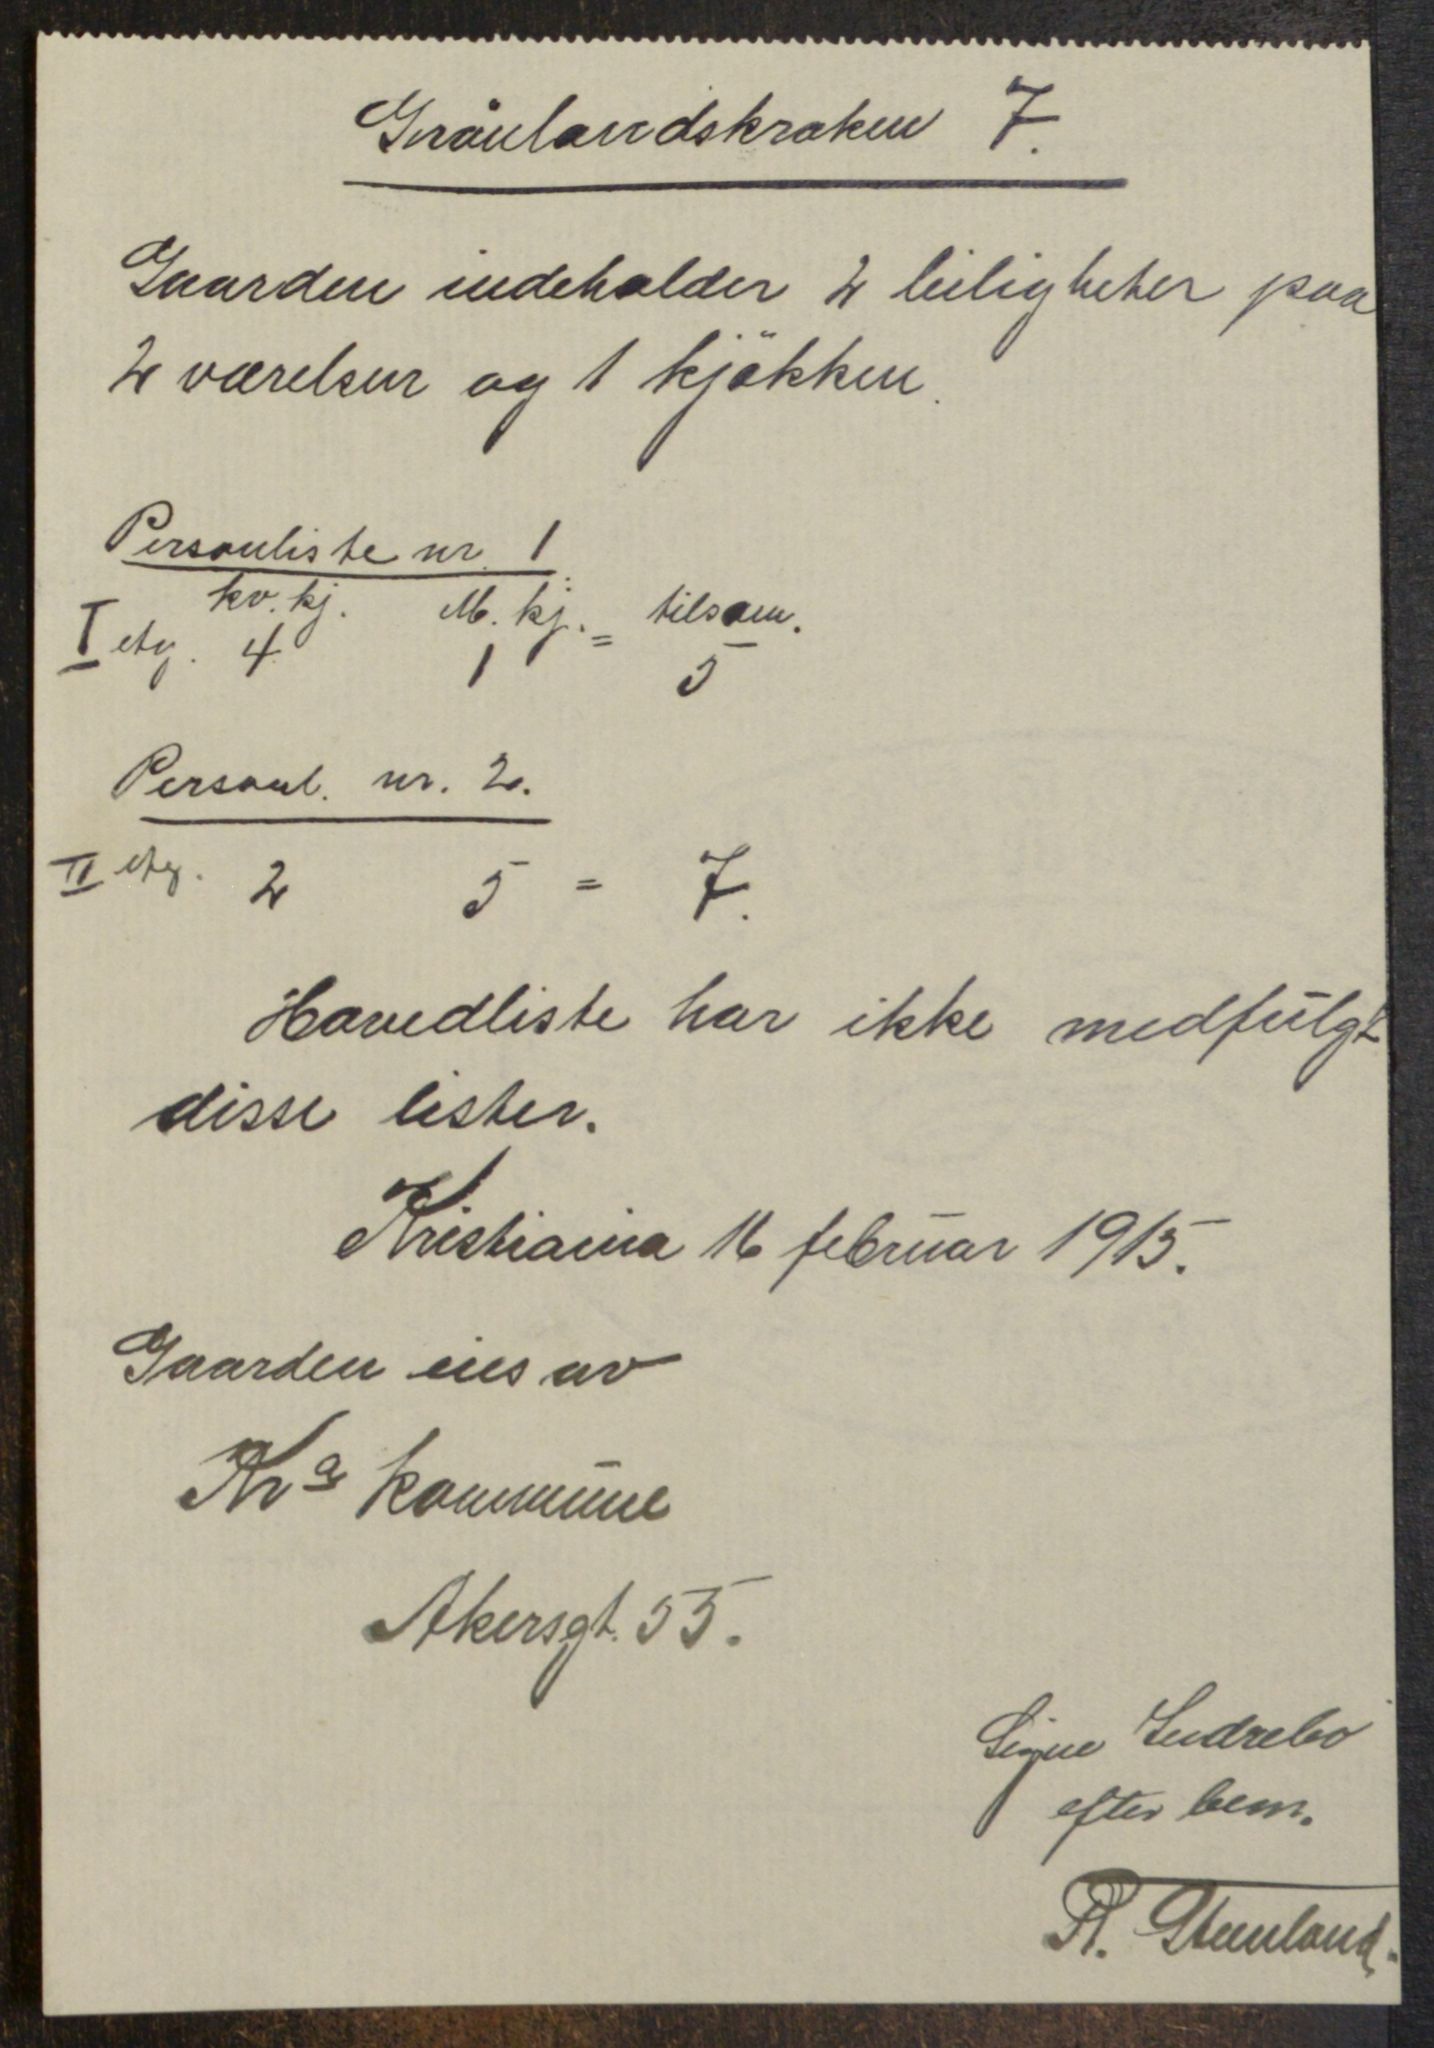 Grönlandskroken 7.
Gaarden indeholder 2 leiligheter paa
2 værelser og 1 kjökken.
Personliste nr. 1
kv. kj. M. kj. = tilsam.
I etg. 4 1 5
Personl. nr. 2.
II etg. 2 5 = 7.
Hovedliste har ikke medfulgt
disse lister.
Kristiania 16 februar 1915.
Gaarden eies av
Kra kommune
Akersgt. 55.
Signe Indrebö
efter bem.
R. Stenland.